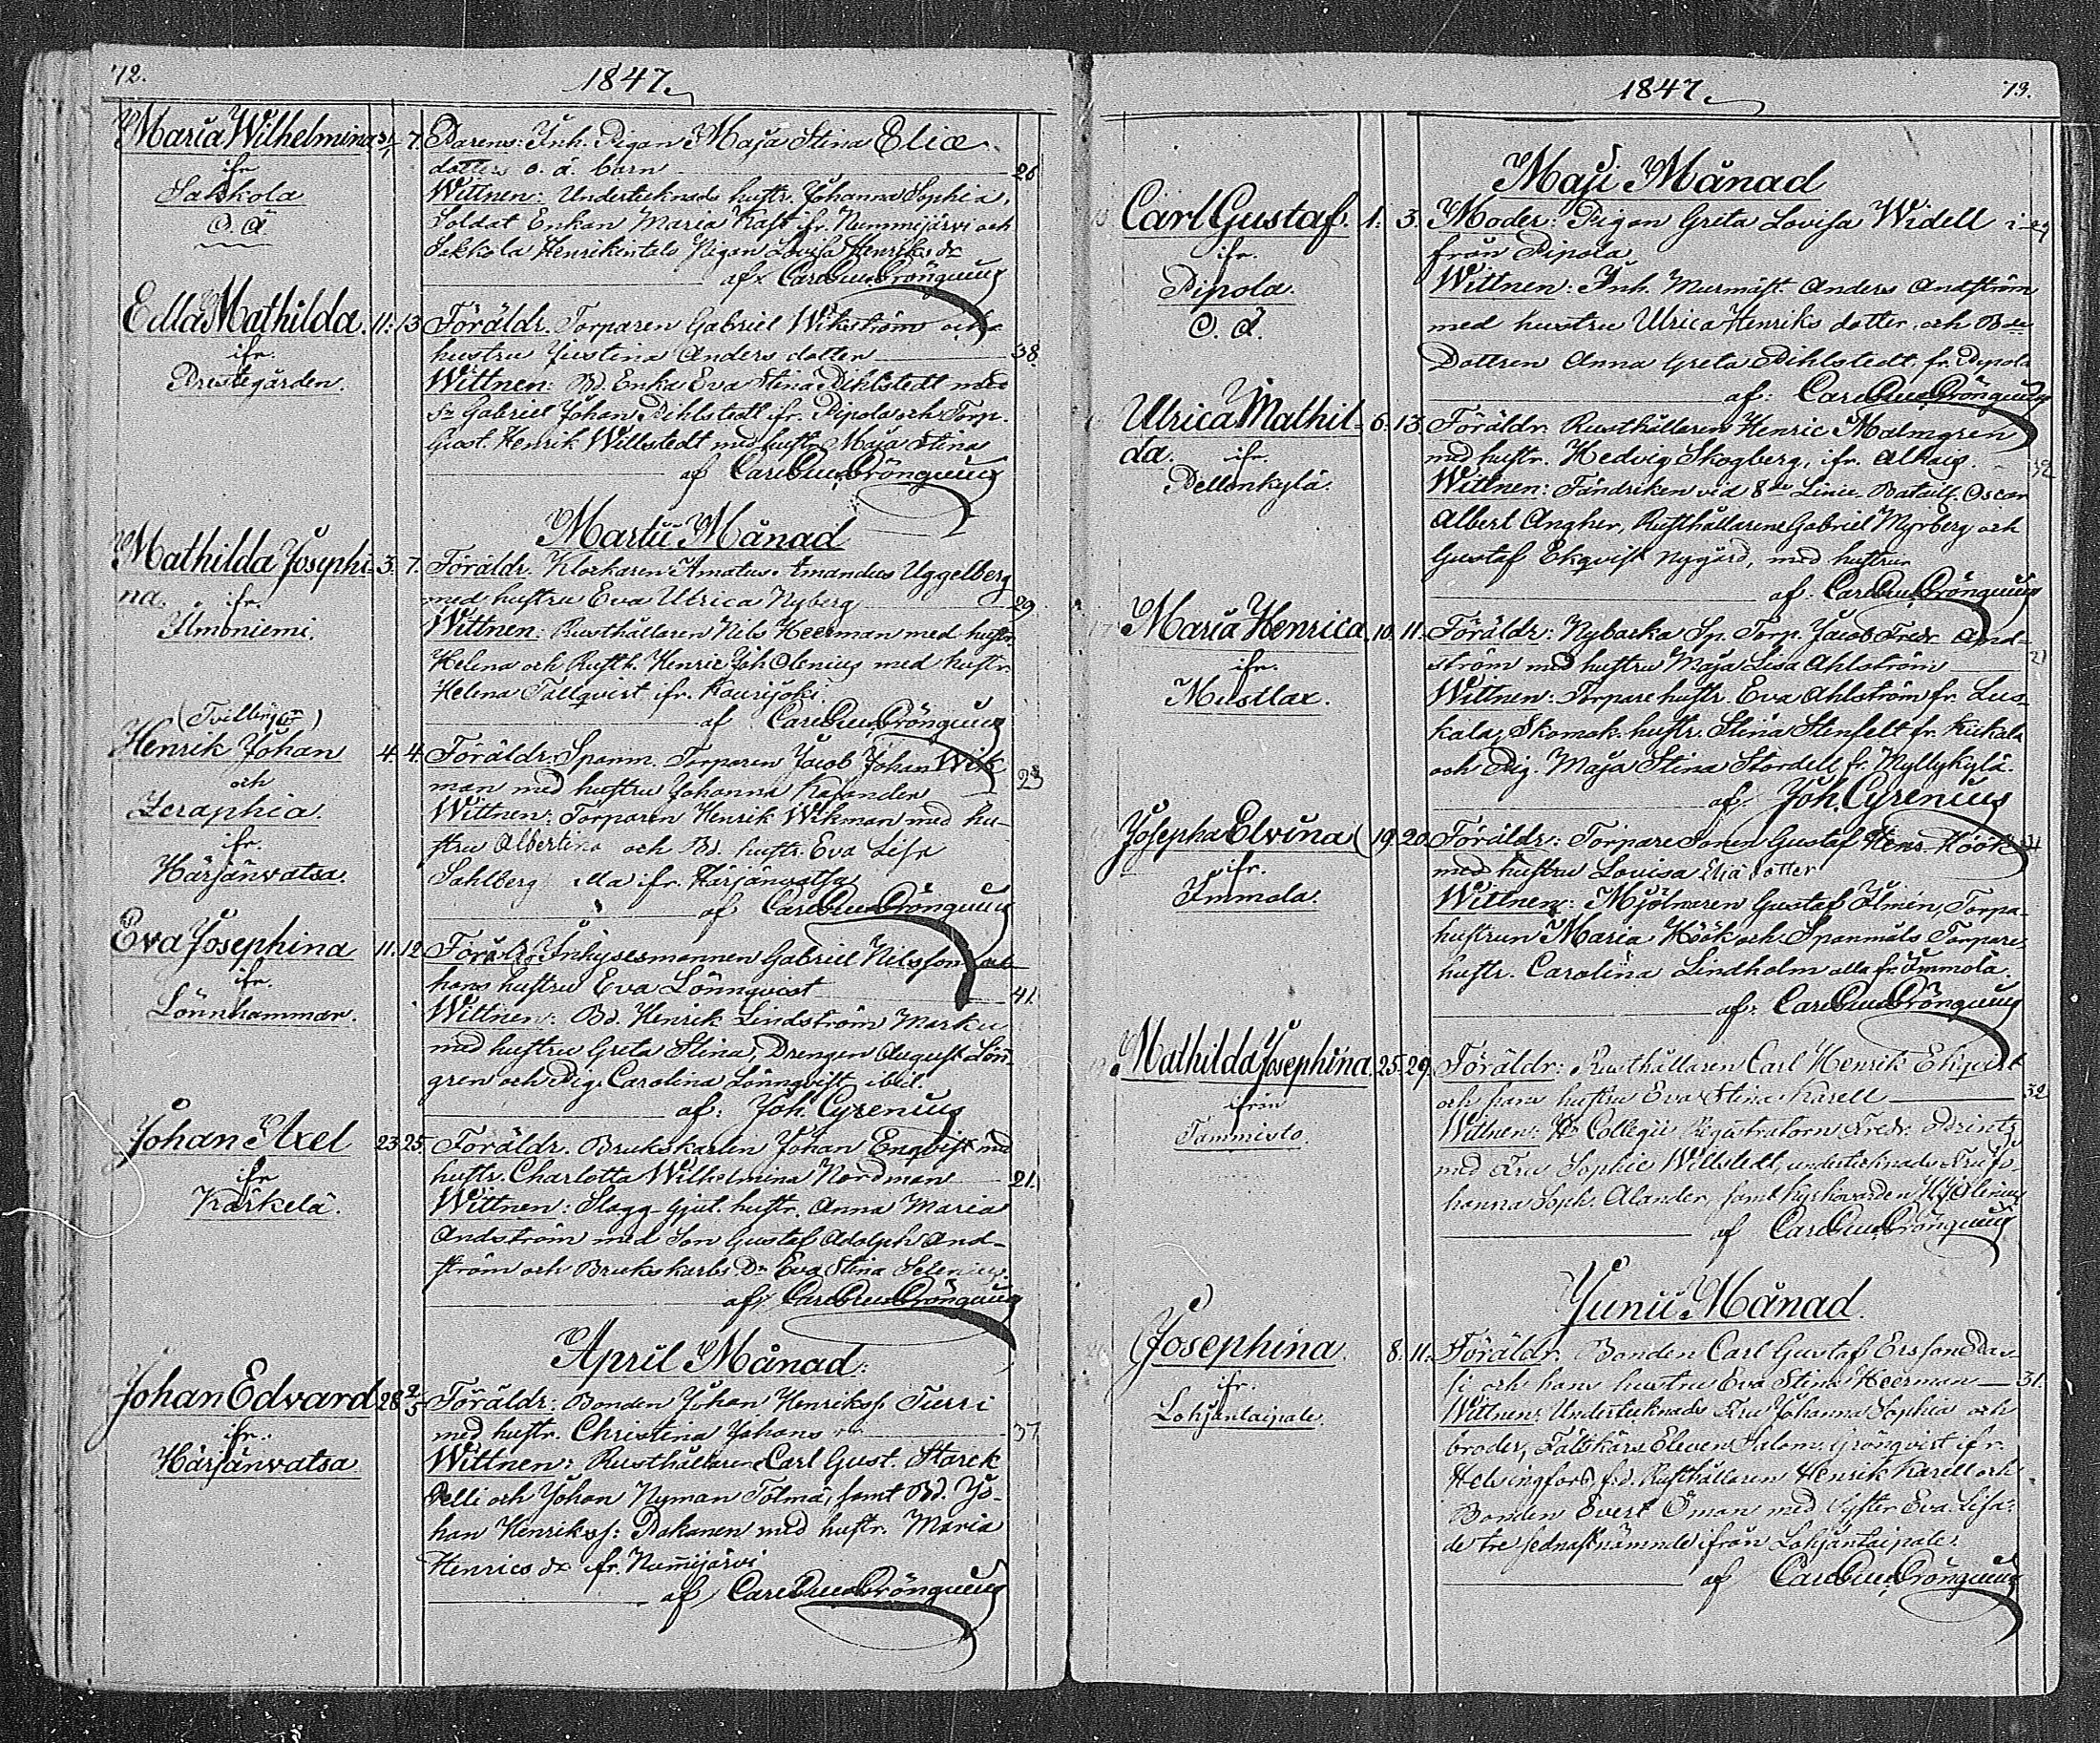 72.
1847.
Maria Wilhelmina 31/1 7. Parens: Inh. Pigan Maja Stina Eliæ
ifr dotters o. ä. barn 26
Sakkola Wittnen: Undertecknads hustr. Johanna Sophia,
O. Ä Soldat Enkan Maria Kast ifr. Nummijärvi och
Sakkola Henrikintalo Pigan Lovisa Henriks dr
af Carl Gust. Grönqvist
Edla Mathilda. 11. 13 Föräldr. Torparen Gabriel Wikström och
ifr. hustru Justina Anders dotter 38.
Prestegården. Wittnen: Bd. Enka Eva Stina Pihlstedt med
Sn Gabriel Johan Pihlstedt ifr. Pipola och Torp.
Gust. Henrik Willstedt med hustr. Maja Stina
af Carl Gust. Grönqvist
Martii Månad
Mathilda Josephi- 3. 7. Föräldr. Klockaren Amatus Amandus Uggelberg
na. ifr. med hustru Eva Ulrica Nyberg 29.
Ilmoniemi. Wittnen: Rusthållaren Nils Heerman med hustr.
Helena och Rusth. Henric Joh Olenius med hustr.
Helena Tallqvist ifr. Kourijoki.
af Carl Gust. Grönqvist
(Tvillingar)
Henrik Johan 4. 4. Föräldr. Spanm. Torparen Jacob Johan Wik
och man med hustru Johanna Kajander 23
Zeraphia. Wittnen: Torparen Henrik Wikman med hu-
ifr. stru Albertina och Bd. hustr. Eva Lisa
Härjänvatsa. Sahlberg alla ifr. Härjänvatsa
af Carl Gust. Grönqvist
Eva Josephina 11. 12 Föräldr. Inhysesmannen Gabriel Nilsson och
ifr. hans hustru Eva Lönnqvist 41.
Lönnhammar. Wittnen: Bd. Henrik Lindström Marku
med hustru Greta Stina, Drengen August Lön-
gren och Pig. Carolina Lönnqvist ibid.
af: Joh. Cyrenius
Johan Axel 23 25. Föräldr. Brukskarlen Johan Enqvist med
ifr hustr. Charlotta Wilhelmina Nordman 21.
Kärkelä. Wittnen: Slagg Gjut. hustr. Anna Maria
Andström med Son Gustaf Adolph And-
ström och Brukskarls Dr Eva Stina Selenius.
af Carl Gust. Grönqvist
April Månad.
Johan Edvard 28 2/5 Föräldr: Bonden Johan Henrikss. Turri
ifr. med hustr. Christina Johans dr 37
Härjänvatsa Wittnen: Rusthållaren Carl Gust. Starck
Pelli och Johan Nyman Tölmä, samt Bd. Jo-
han Henrikss: Pakanen med hustr. Maria
Henrics dr ifr. Nummijärvi
af Carl Gust. Grönqvist
1847. 73.
Maji Månad
Carl Gustaf. 1. 3. Moder: Pigan Greta Lovisa Widell
ifr. från Pipola
Pipola. Wittnen: Inh. Murmäst. Anders Andström
O. Ä. med hustru Ulrica Henriks dotter, och Bde
Dottren Anna Greta Pihlstedt, fr. Pipola
af: Carl Gust. Grönqvist
Ulrica Mathil- 6. 13. Föräldr. Rusthållaren Henric Malmgren
da. ifr. med hustr. Hedvig Skogberg, ifr. Alhais.
Pellonkylä. Wittnen: Fändriken vid 8de Linie Batailj. Oscar
Albert Angher, Rusthållarene Gabriel Myrberg och
Gustaf Ekqvist Nygård, med hustrur
af: Carl Gust. Grönqvist
Maria Henrica. 10. 11. Föräldr: Nybacka Sp. Torp. Jacob Fredr And-
ifr. ström med hustru Maja Lisa Ahlström 21
Mustlax. Wittnen: Torpare hustr. Eva Ahlström fr. Lus-
kala, Skomak. hustr. Stina Stenfelt fr. Kukala
och Pig. Maja Stina Stordell fr. Myllykylä.
af: Joh. Cyrenius
Josepha Elvina 19. 20. Föräldr: Torpare Sonen Gustaf Henr. Höök
ifr. med hustru Lovisa Eliæ dotter
Immola. Wittnen: Mjölnaren Gustaf Ilmin, Torpa-
hustrun Maria Höök och Spanmåls Torpare
hustr. Carolina Lindholm alla fr. Immola.
af: Carl Gust. Grönqvist
Mathilda Josephina 25. 29. Föräldr: Rusthållaren Carl Henrik Ekqvist
ifrån och hans hustru Eva Stina Karell 32
Tammisto. Wittnen: Hr Collegii Registratorn Fredr. Printz
med Fru Sophie Willstedt, undertecknads Fru Jo-
hanna Soph. Alander, samt Kyrkovärden H J Olenius
af Carl Gust. Grönqvist
Junii Månad.
Josephina. 8. 11. Föräldr. Bonden Carl Gustaf Ersson Dav-
ifr. si och hans hustru Eva Stina Heerman 31.
Lohjantaipale. Wittnen: Undertecknads Fru Johanna Sophia och
broder, Fältskärs Eleven Salom. Grönqvist ifr.
Helsingfors, f.d. Rusthållaren Henrik Karell och
Bonden Evert Öman med Syster Eva Lisa:
de tre sednastnämnde ifrån Lohjantaipale.
af Carl Gust. Grönqvist